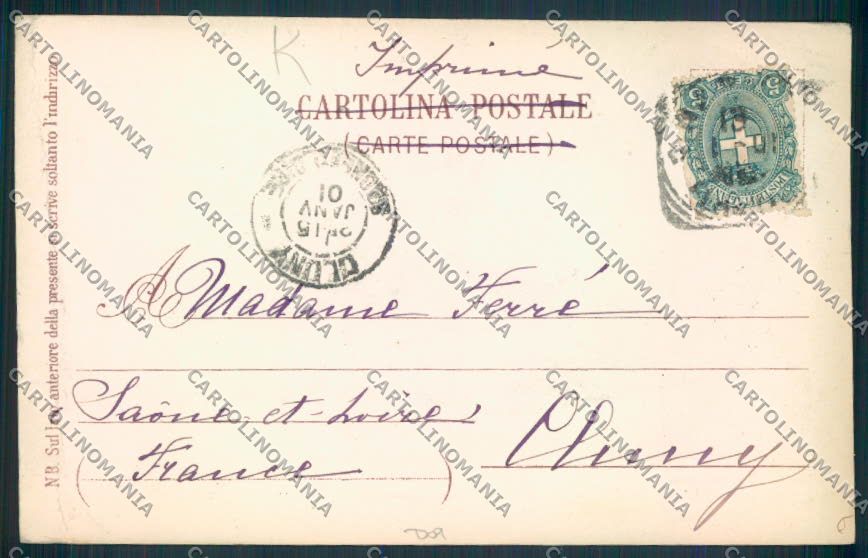 K
Imprimé
CARTOLINA POSTALE
(CARTE POSTALE)
CLUNY
2E 15
JANV
01
SAÔNE-ET-LOIRE
POSTE ITALIANE
5
5
A Madame Ferré
Saône-et-Loire
Cluny
France
NB. Sul lato anteriore della presente si scrive soltanto l'indirizzo
CARTOLINOMANIA